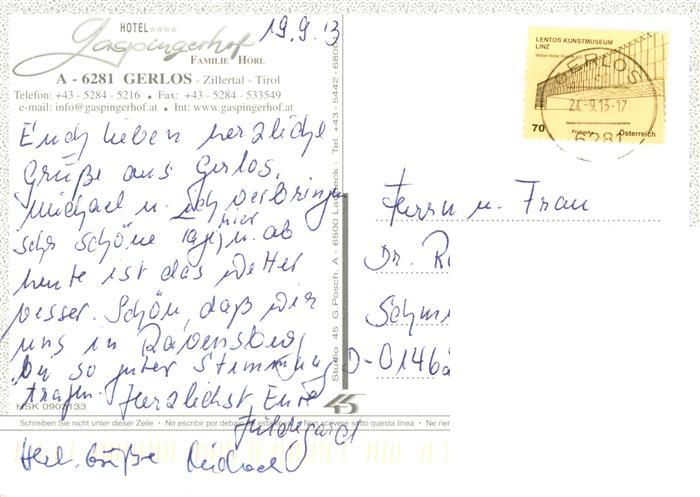 HOTEL ****
Gaspingerhof
FAMILIE HÖRL
A - 6281 GERLOS - Zillertal - Tirol
Telefon: +43 - 5284 - 5216 • Fax: +43 - 5284 - 533549
e-mail: info@gaspingerhof.at • Int: www.gaspingerhof.at
19.9.13
Euch lieben herzliche
Grüße aus Gerlos.
Michael u. ich verbringen
sehr schöne Tage hier u. ab
heute ist das Wetter
besser. Schön, daß wir
uns in Ravensburg
bei so guter Stimmung
trafen. Herzlichst Eure
Hildegard
Herzl. Grüße Michael
HSK 0903133
Schreiben Sie nicht unter dieser Zeile • No escribir por debajo • Non scrivere sotto questa linea • Ne
Studio 45 G.Posch, A - 6500 Landeck - Tel. +43 - 5442 - 680
45
LENTOS KUNSTMUSEUM
LINZ
70
Österreich
GERLOS
24.-9.13-17
6281
Herrn u. Frau
Dr. R
Schm
D-0146